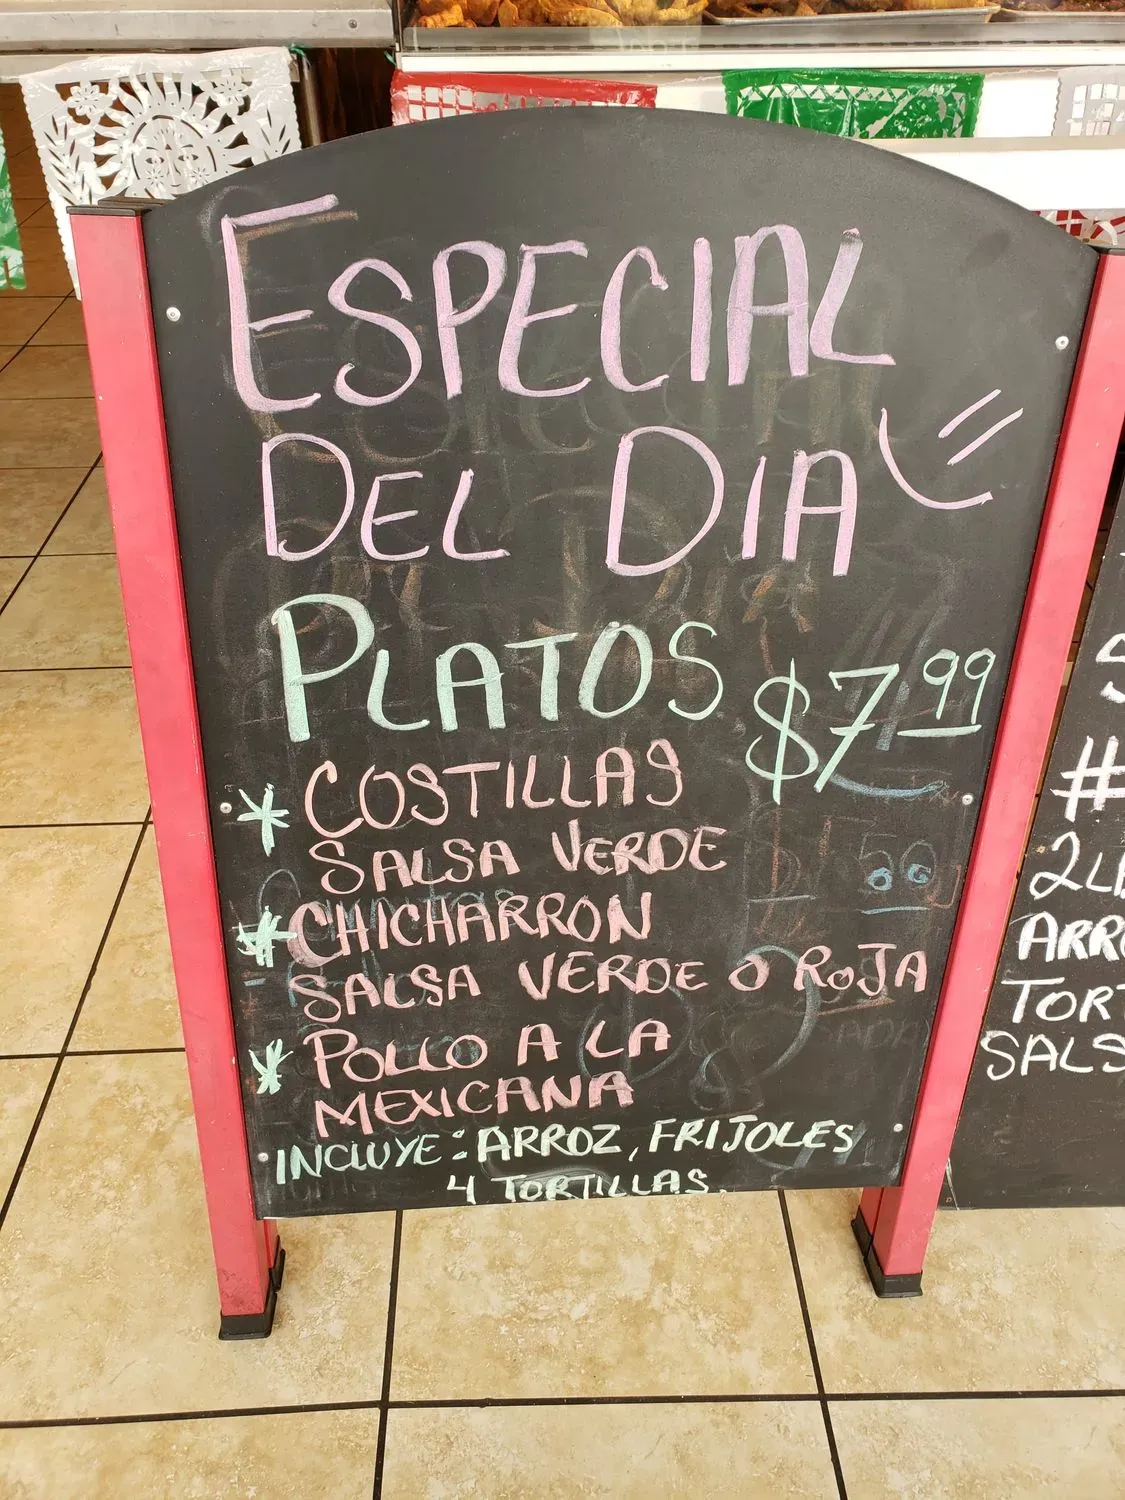 ESPECIAL
DEL DIA
PLATOS $7.99
* COSTILLAS
SALSA VERDE
* CHICHARRON
SALSA VERDE O ROJA
* POLLO A LA
MEXICANA
INCLUYE: ARROZ, FRIJOLES
4 TORTILLAS.
#
2